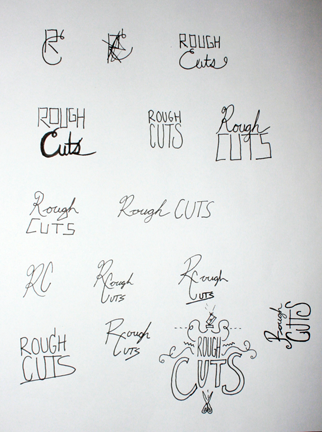 RC
RC
ROUGH
Cuts
ROUGH
Cuts
ROUGH
CUTS
Rough
CUTS
Rough
CUTS
Rough CUTS
RC
Rough
CUTS
Rough
CUTS
ROUGH
CUTS
Rough
CUTS
ROUGH
CUTS
Rough
CUTS